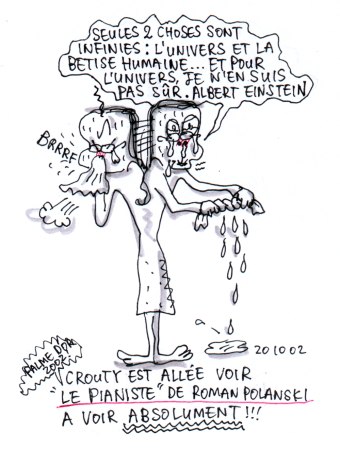 SEULES 2 CHOSES SONT
INFINIES : L'UNIVERS ET LA
BETISE HUMAINE... ET POUR
L'UNIVERS, JE N'EN SUIS
PAS SÛR. ALBERT EINSTEIN
BRRRF
20 10 02
PALME D'OR
2002
CROUTY EST ALLÉE VOIR
"LE PIANISTE" DE ROMAN POLANSKI
A VOIR ABSOLUMENT !!!